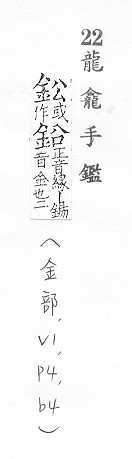 22 龍龕手鑑
或作
正音緣丨錫
音金也二
(金部, V1, P4, b4)